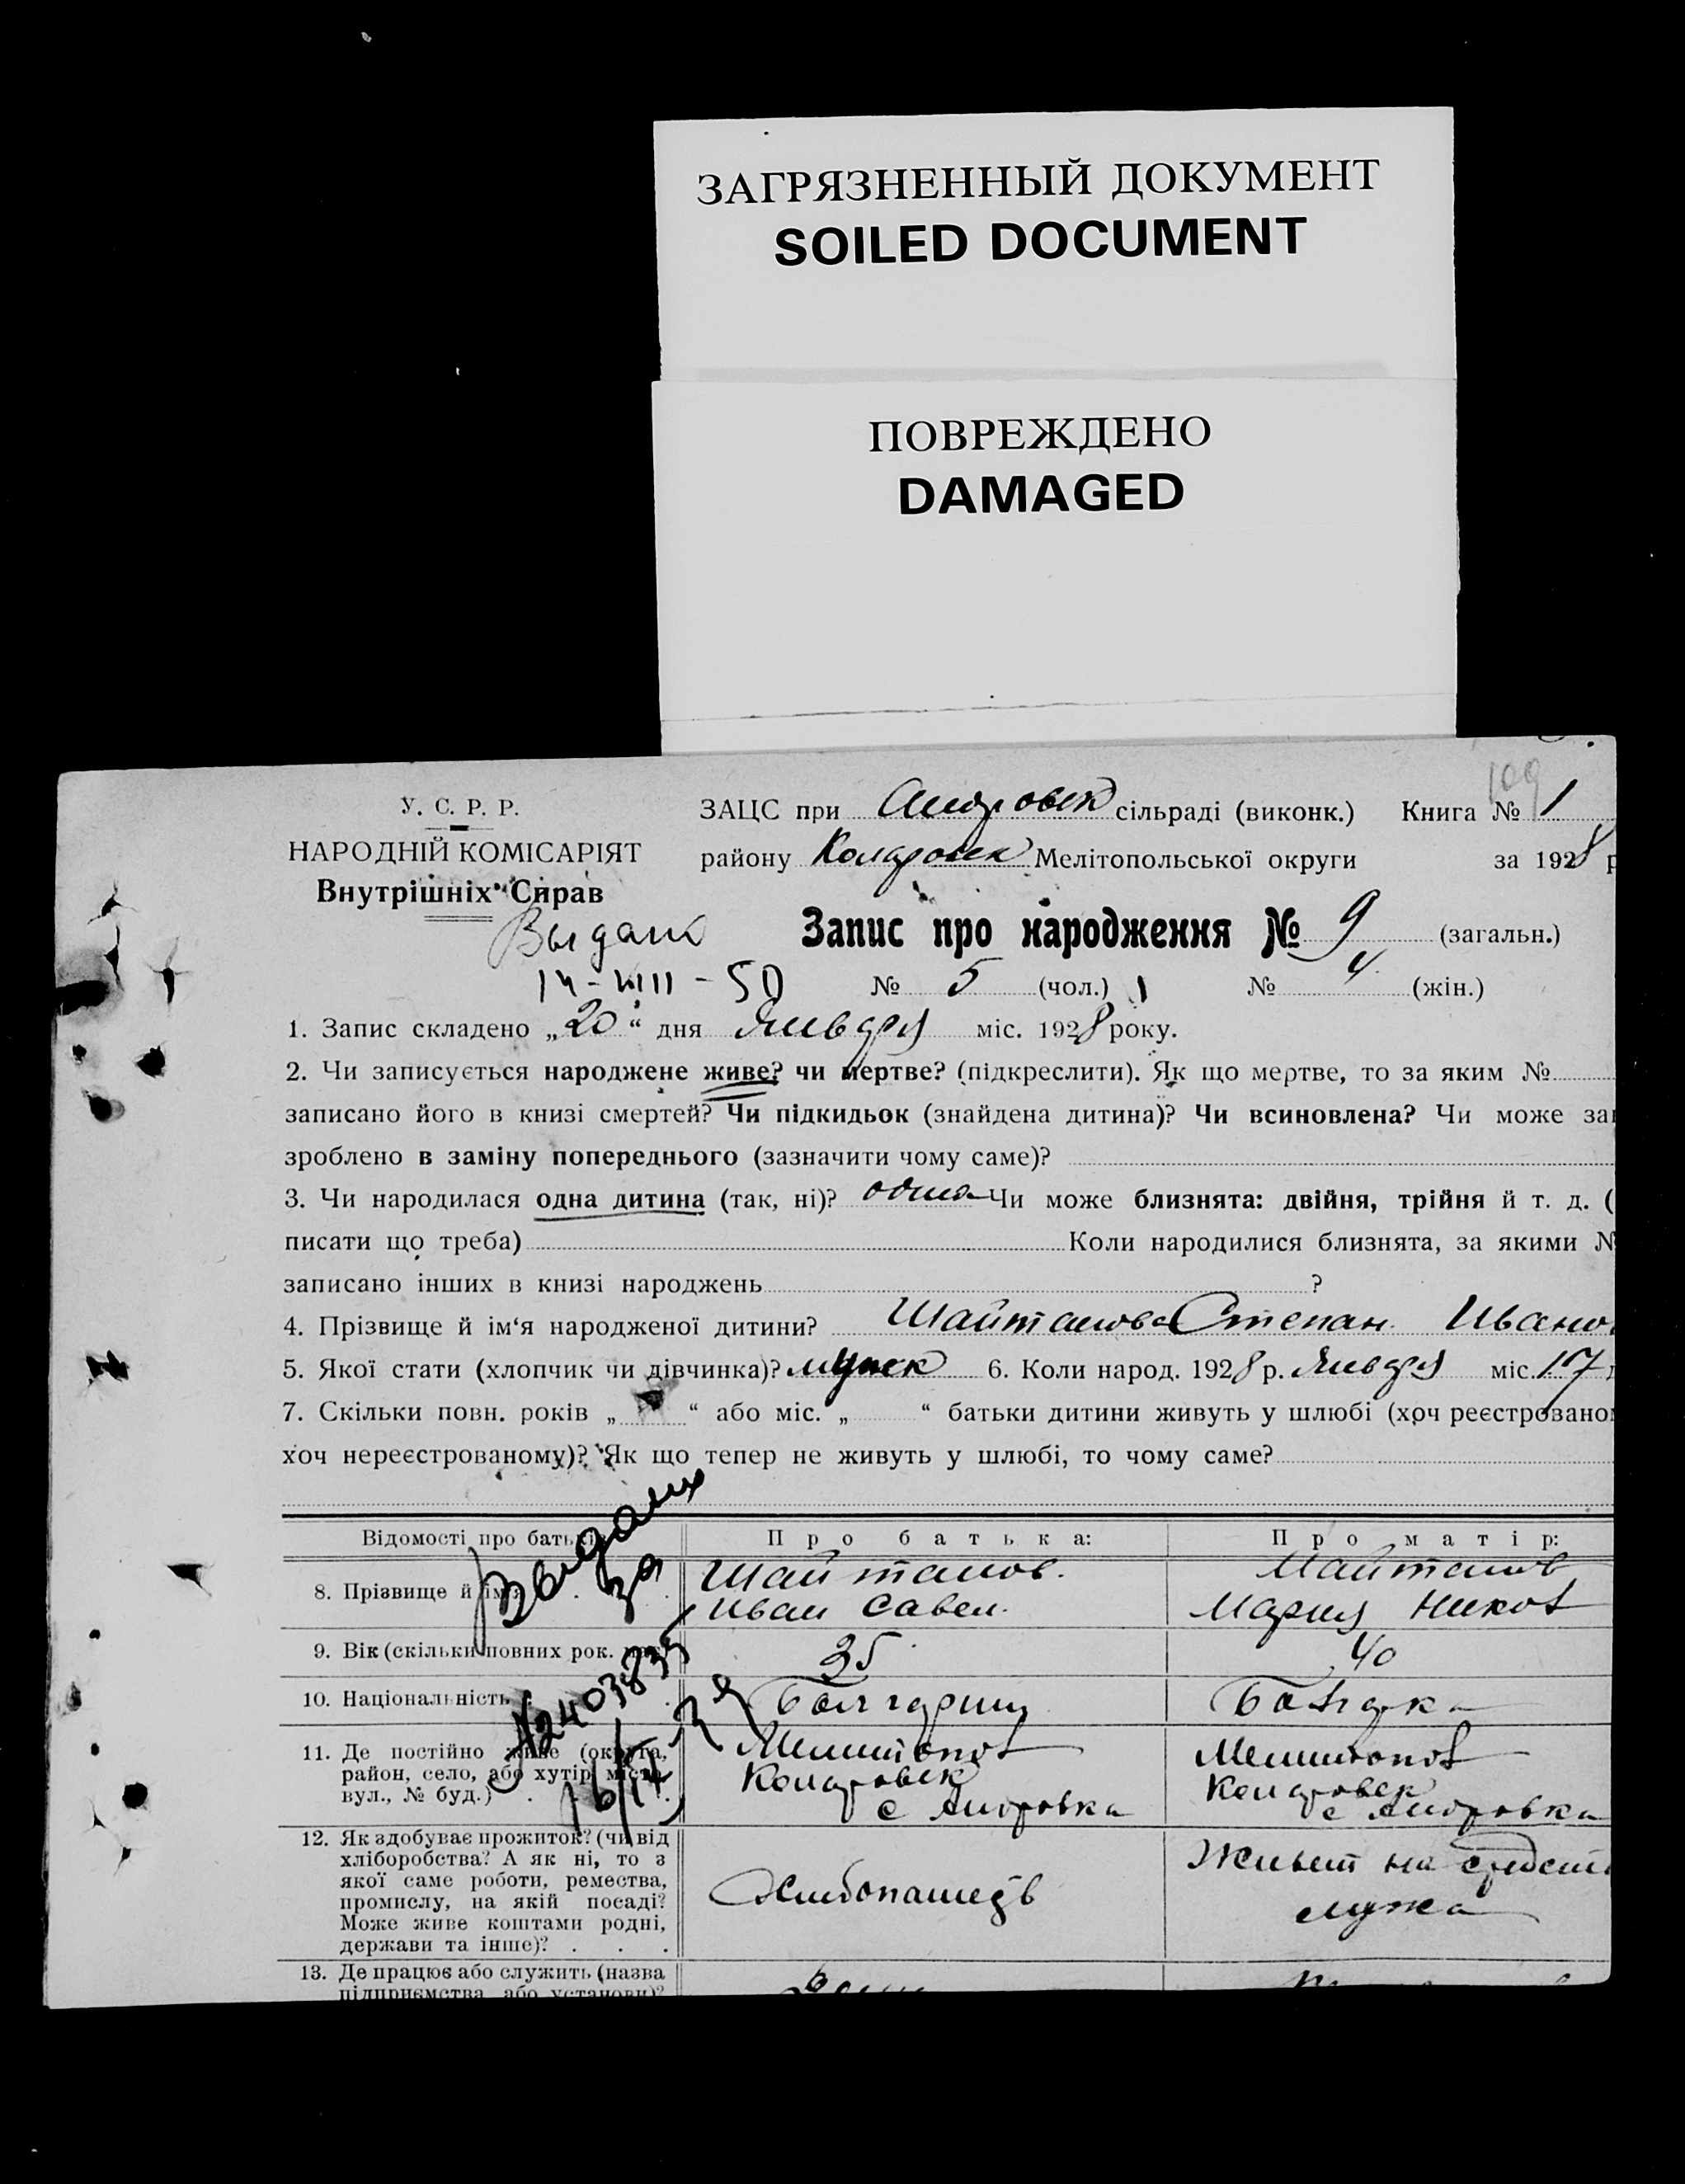 ЗАГРЯЗНЕННЫЙ ДОКУМЕНТ
SOILED DOCUMENT
ПОВРЕЖДЕНО
DAMAGED
109
У. С. Р. Р.
НАРОДНІЙ КОМІСАРІЯТ
Внутрішніх Справ
ЗАЦС при Андровск сільраді (виконк.) Книга № 1
району Коларовск Мелітопольської округи за 1928 р
Выдано
14-VIII-50
Запис про народження № 9 (загальн.)
№ 5 (чол.) № 4 (жін.)
1. Запис складено „20“ дня Января міс. 1928 року.
2. Чи записується народжене живе? чи мертве? (підкреслити). Як що мертве, то за яким №
записано його в книзі смертей? Чи підкидьок (знайдена дитина)? Чи всиновлена? Чи може за
зроблено в заміну попереднього (зазначити чому саме)?
3. Чи народилася одна дитина (так, ні)? одна Чи може близнята: двійня, трійня й т. д. (
писати що треба) Коли народилися близнята, за якими №
записано інших в книзі народжень ?
4. Прізвище й ім‘я народженої дитини? Шайтанова Степан Ивано
5. Якої стати (хлопчик чи дівчинка)? мужск 6. Коли народ. 1928 р. Января міс. 17
7. Скільки повн. років „ “ або міс. „ “ батьки дитини живуть у шлюбі (хоч реєстровано
хоч нереєстрованому)? Як що тепер не живуть у шлюбі, то чому саме?
Выдано
Відомості про батьків П р о б а т ь к а: П р о м а т і р:
8. Прізвище й ім‘я Шайтанов. Шайтанов
Иван Савел. Мария Никол
9. Вік (скільки повних рок. 35 40
10. Національність Болгарин Болгарка
11. Де постійно живе (округа, район, село, або хутір, місто, вул., № буд.)
Мелитопол Мелитопол
Коларовск Коларовск
с Андровка с Андровка
12. Як здобуває прожиток? (чи від
хліборобства? А як ні, то з
якої саме роботи, ремества,
промислу, на якій посаді?
Може живе коштами родні,
держави та інше)?
Хлебопашедъ Живет на средств
мужа
13. Де працює або служить (назва
підприємства або установи)?